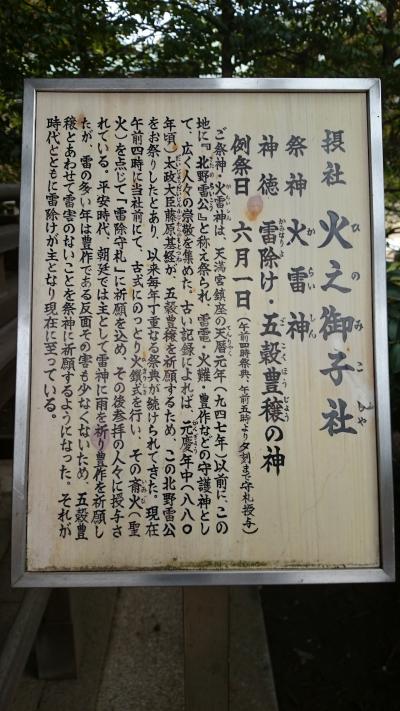 摂社 火之御子社
ひのみこ
しゃ
祭神 火雷神
からいしん
神徳 雷除け・五穀豊穣の神
かみなりよ
ごこくほうじょう
例祭日 六月一日(午前四時祭典、午前五時より夕刻まで守札授与)
ご祭神・火雷神は、天満宮鎮座の天暦元年(九四七年)以前に、この
地に『北野雷公』と称え祭られ、雷電・火難、豊作などの守護神とし
て、広く人々の崇敬を集めた。古い記録によれば、元慶年中(八八〇
年頃)太政大臣藤原基経が、五穀豊穣を祈願するため、この北野雷公
をお祭りしたとあり、以来毎年丁重なる祭典が続けられてきた。現在
午前四時に当社前にて、古式にのっとり火鑚式を行い、その斎火(聖
火)を点じて「雷除守札」に祈願を込め、その後参拝の人々に授与さ
れている。平安時代、朝廷では主として雷神に雨を祈り豊作を祈願し
たが、雷の多い年は豊作である反面その害も少なくないため、五穀豊
穣とあわせて雷害のないことを祭神に祈願するようになった。それが
時代とともに雷除けが主となり現在に至っている。